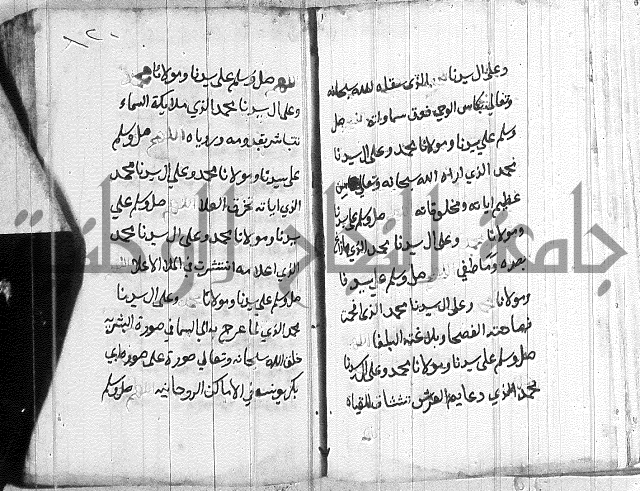 وعلى ال سيدنا الذي سقاه الله سبحانه
وتعالى بكاس الوحي فوق سماواته اللهم صل
وسلم على سيدنا ومولانا محمد وعلى ال سيدنا
محمد الذي اراه الله سبحانه وتعالى من
عظيم اياته ومخلوقاته صل وسلم على سيدنا
ومولانا وعلى ال سيدنا محمد الذي مازاغ
بصره وما طغى اللهم صل وسلم على سيدنا
ومولانا وعلى ال سيدنا محمد الذي
فصاحته الفصحا وبلاغته البلغا
صل وسلم على سيدنا ومولانا محمد وعلى ال سيدنا
محمد الذي دعايم العرش تشتاق للقياه
١٢٠
اللهم صل وسلم على سيدنا ومولانا محمد
وعلى ال سيدنا محمد الذي ملايكة السماء
تتباشر بقدومه ورؤياه اللهم صل وسلم
على سيدنا ومولانا محمد وعلى ال سيدنا محمد
الذي اياته تخرق العلا اللهم صل وسلم على
سيدنا ومولانا محمد وعلى ال سيدنا محمد
الذي اعلامه انتشرت في الملا الاعلا اللهم
صل وسلم على سيدنا ومولانا وعلى ال سيدنا
محمد الذي لما عرج به الى السما في صورة البشرية
خلق الله سبحانه وتعالى صورة على صورة ابي
بكر يونسه في الاماكن الروحانيه اللهم صل وسلم
جامعة الملك